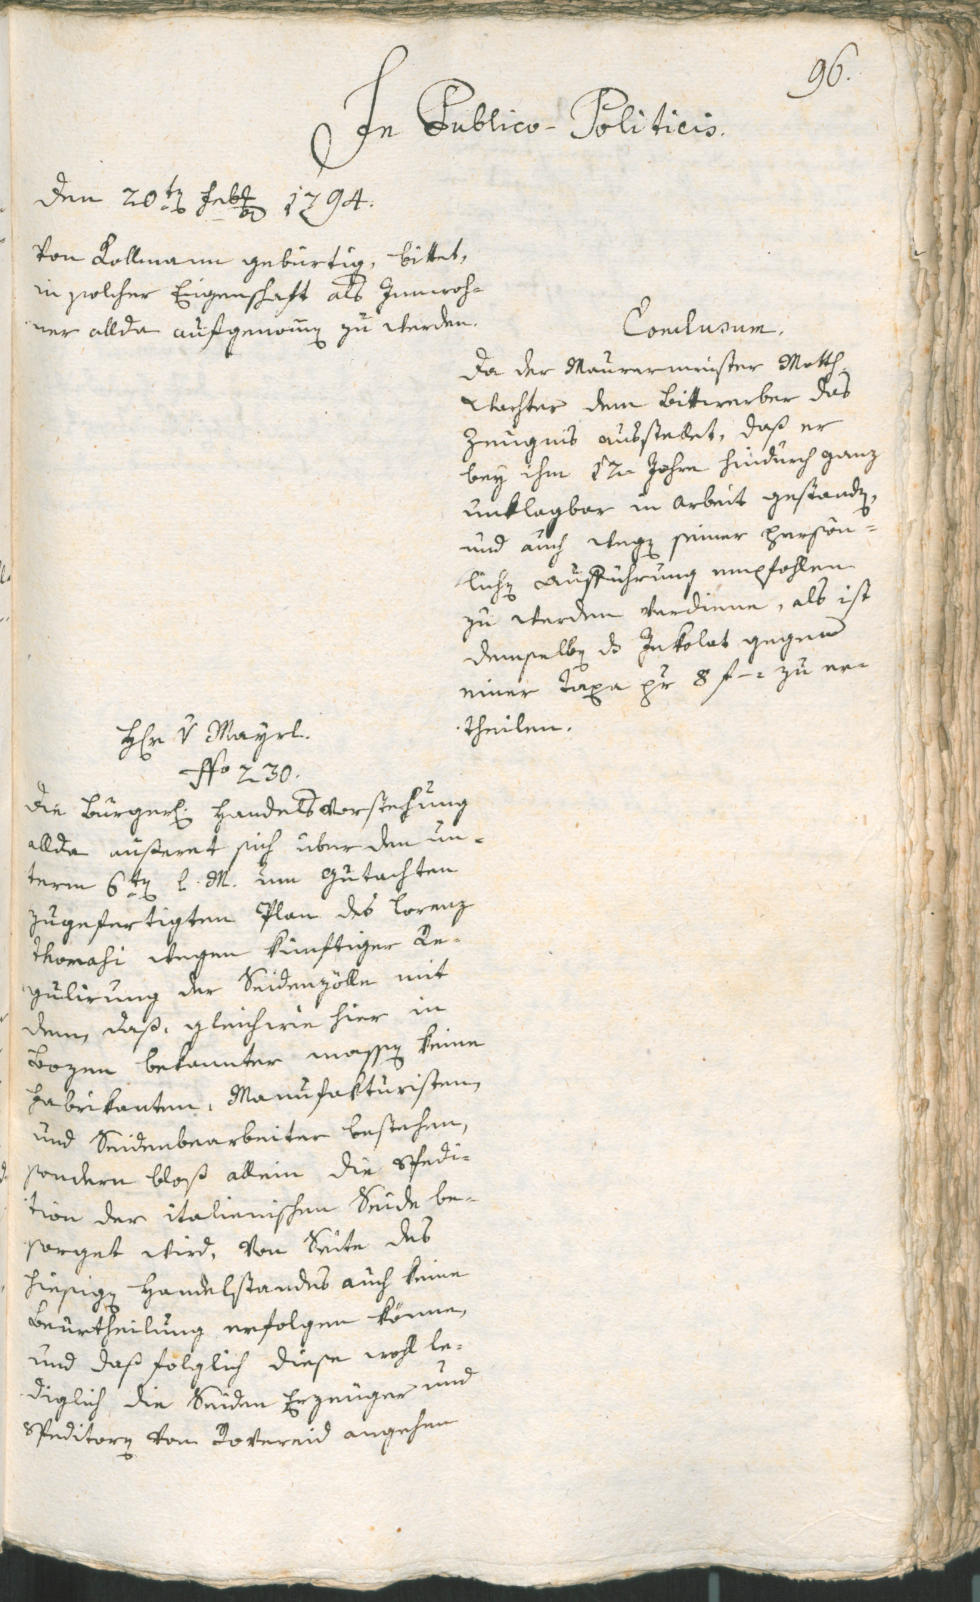 96.
In Publico-Politicis.
Den 20t Febr 1794.
Von Kollmann gebürtig, bittet,
in solcher Eigenschaft als Innwoh=
ner allda aufgenomen zu werden.
Conclusum.
Da der Maurermeister Matth.
Wachter dem Bittwerber das
Zeugnis ausstellet, daß er
bey ihm 17 Jahre hindurch ganz
unklagbar in Arbeit gestanden,
und auch wegen seiner persön=
lichen Aufführung empfohlen
zu werden verdiene, als ist
demselben das Inkolat gegen
einer Taxa pr 8 f – zu er=
theilen.
Hr v Mayrl.
ffo 230.
Die Bürgerl. Handelsvorstehung
allda äußeret sich über den un=
term 6ten l. M. um Gutachten
zugefertigten Plan des Lorenz
Thomasi wegen künftiger Re=
gulirung der Seidenzölle mit
deme, daß, gleichwie hier in
Bozen bekannter massen keine
Fabrikanten, Manufakturisten,
und Seidenbearbeiter bestehen,
sondern bloß allein die Spedi=
tion der italienischen Seide be=
sorget wird, von Seite des
hiesigen Handelstandes auch keine
Beurtheilung erfolgen könne,
und daß folglich diese wohl le=
diglich die Seiden Erzeuger und
Speditorn von Rovereid angehen